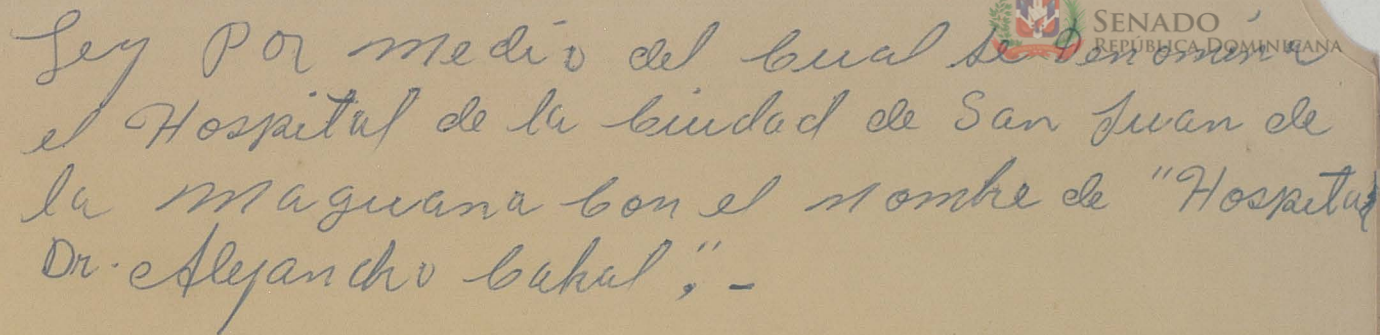 SENADO
REPÚBLICA DOMINICANA
Ley Por medio del Cual se Denomina
el Hospital de la Ciudad de San Juan de
la Maguana Con el nombre de "Hospital
Dr. Alejandro Cabral",-